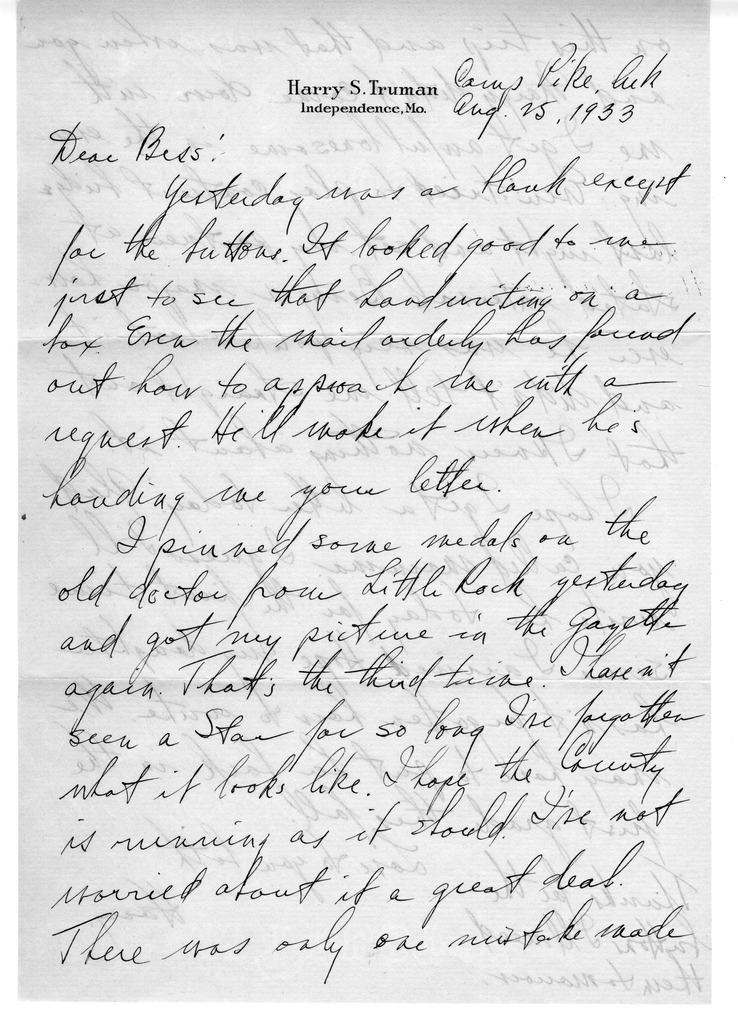 Harry S. Truman
Independence, Mo.
Camp Pike, Ark
Aug. 25, 1933
Dear Bess:
Yesterday was a blank except
for the buttons. It looked good to me
just to see that handwriting on a
box. Even the mail orderly has found
out how to approach me with a
request. He'll make it when he's
handing me your letter.
I pinned some medals on the
old doctor from Little Rock yesterday
and got my picture in the Gazette
again. That's the third time. I haven't
seen a Star for so long I've forgotten
what it looks like. I hope the County
is running as it should. I've not
worried about it a great deal.
There was only one mistake made